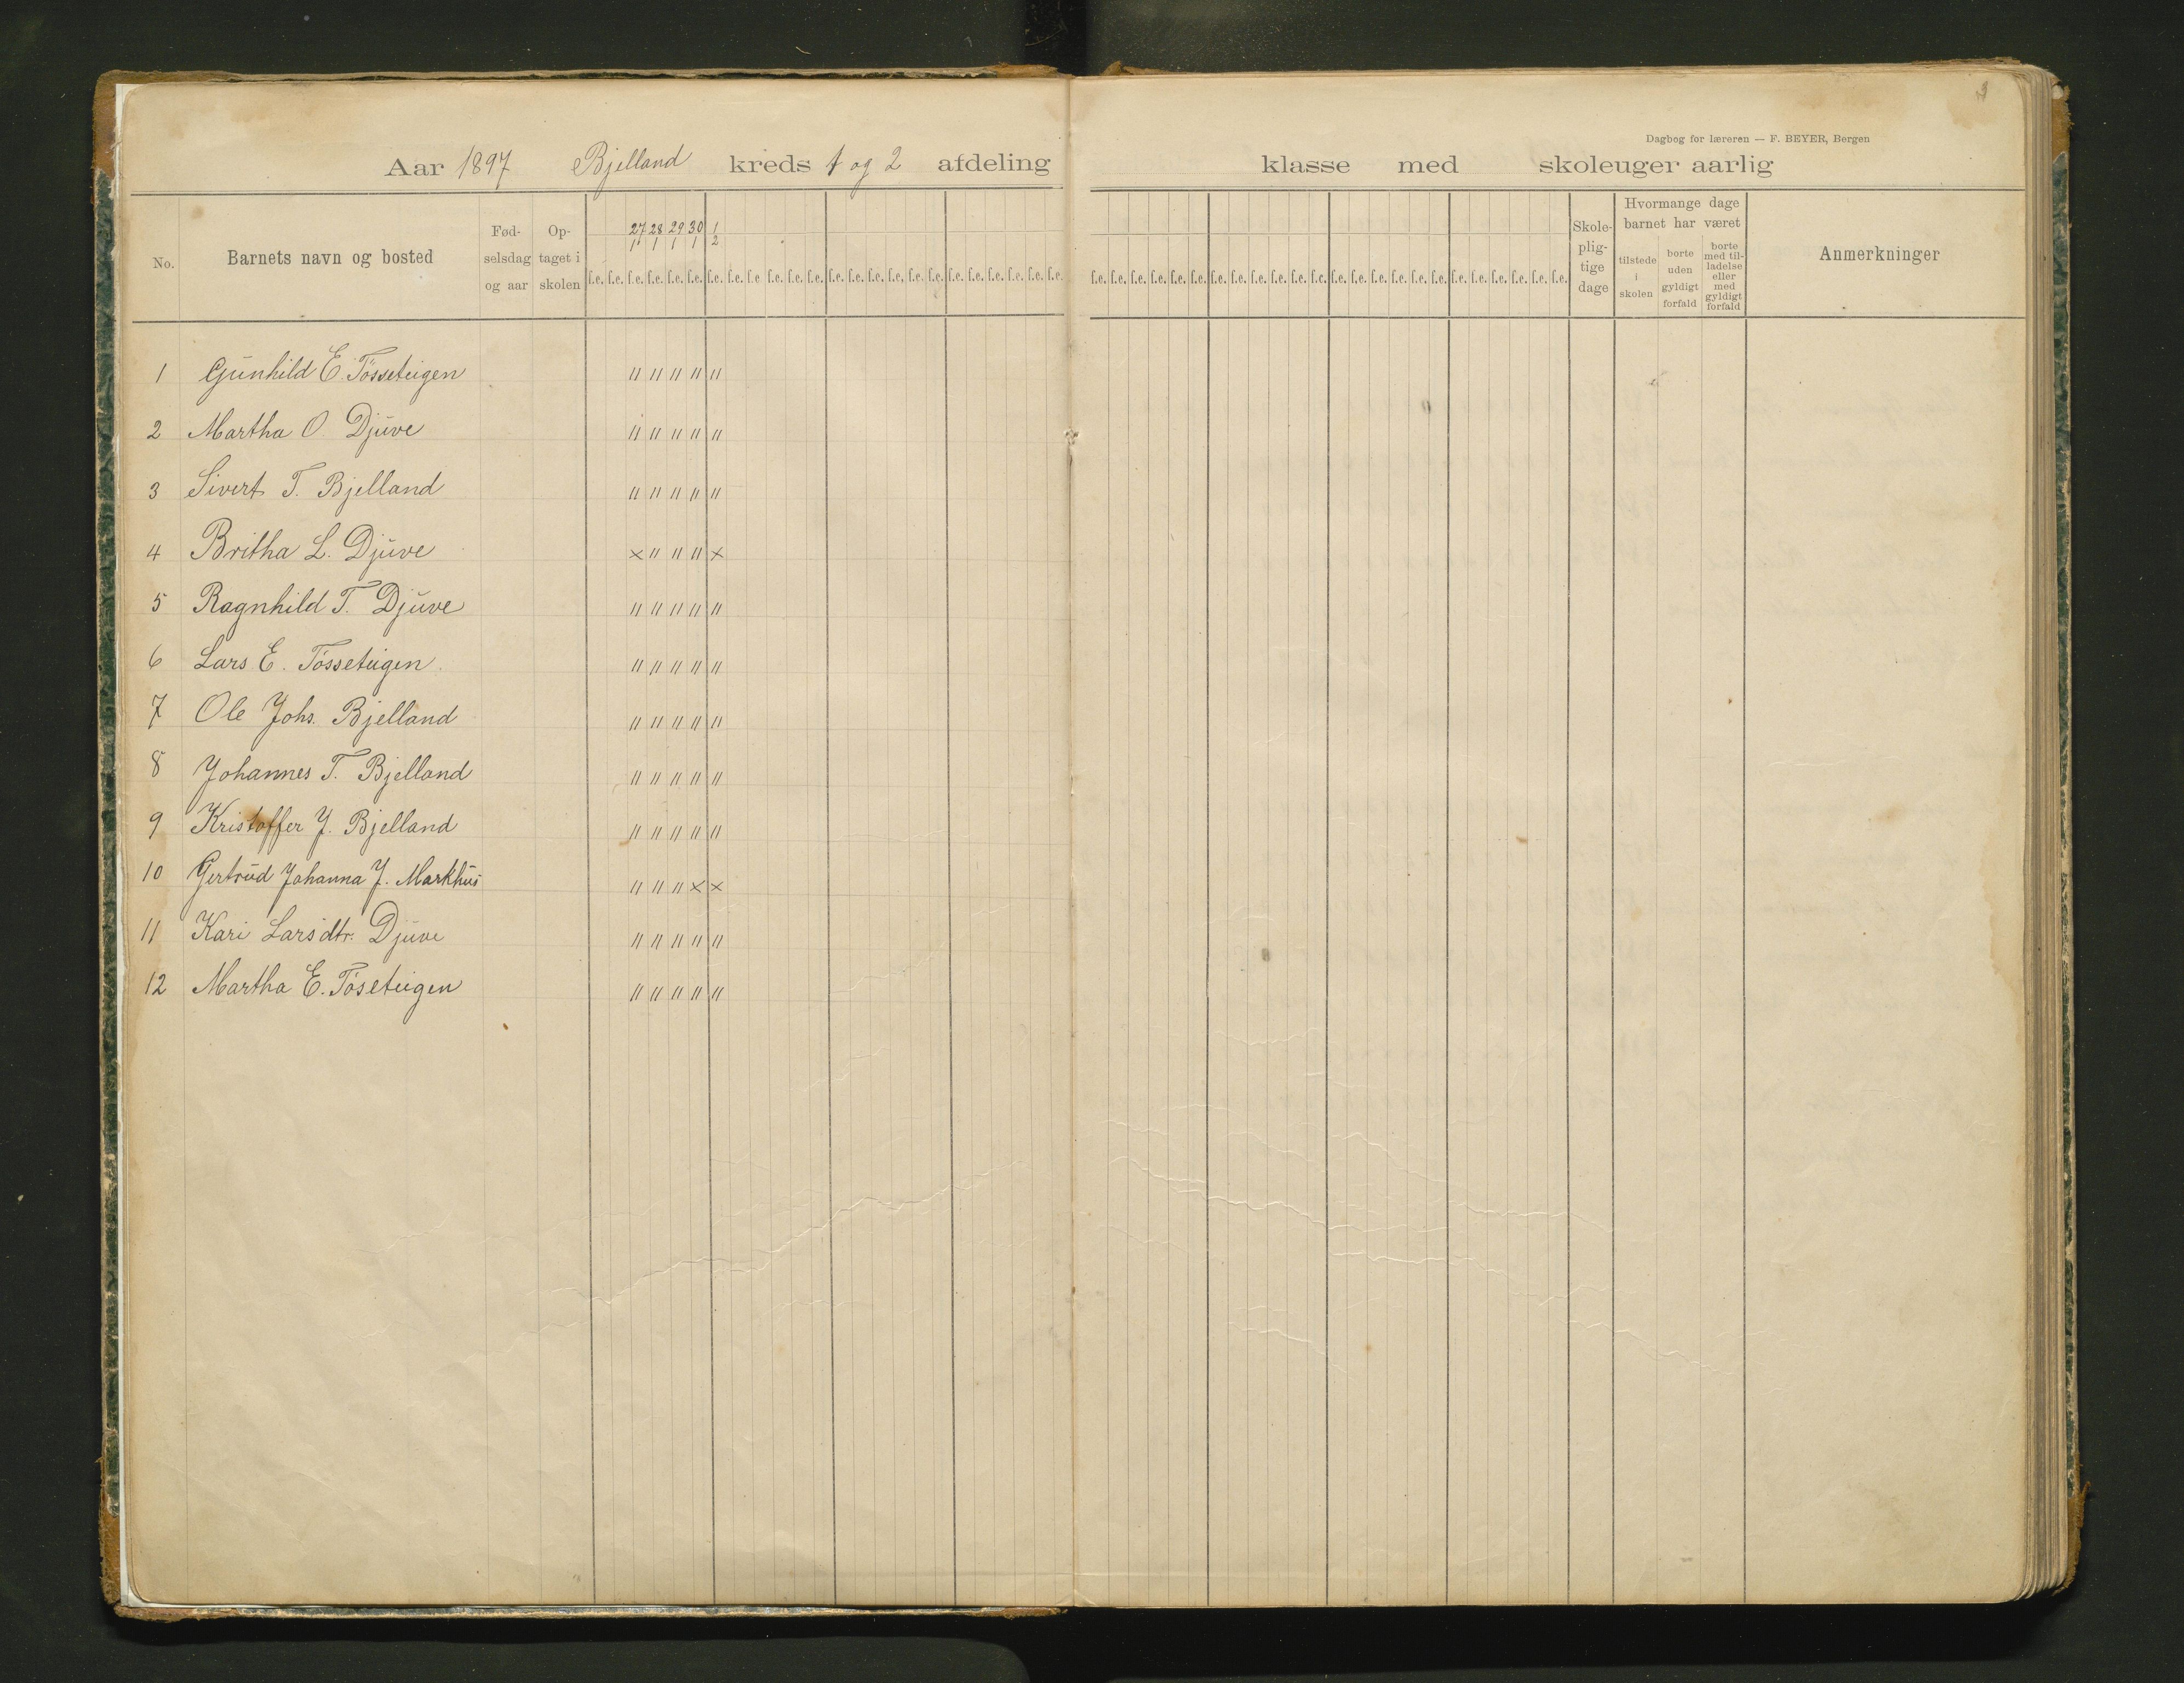 3
Dagbog for læreren — F. BEYER, Bergen
Aar 1897 Bjelland kreds 1 og 2 afdeling klasse med skoleuger aarlig
No. Barnets navn og bosted Fød-selsdag og aar Op-taget i skolen
27 28 29 30 1
1 1 1 1 2
f.e. f.e. f.e. f.e. f.e. f.e. f.e. f.e. f.e. f.e. f.e. f.e. f.e. f.e. f.e. f.e. f.e. f.e. f.e. f.e. f.e. f.e. f.e. f.e.
f.e. f.e. f.e. f.e. f.e. f.e. f.e. f.e. f.e. f.e. f.e. f.e. f.e. f.e. f.e. f.e. f.e. f.e. f.e. f.e. f.e. f.e. f.e. f.e.
Skole-plig-tige dage
Hvormange dage barnet har været
tilstede i skolen
borte uden gyldigt forfald
borte med til-ladelse eller med gyldigt forfald
Anmerkninger
1 Gunhild E. Tösseteigen " " " " "
2 Martha O. Djuve " " " " "
3 Sivert T. Bjelland " " " " "
4 Britha L. Djuve × " " " ×
5 Ragnhild T. Djuve " " " " "
6 Lars E. Tösseteigen " " " " "
7 Ole Johs. Bjelland " " " " "
8 Johannes T. Bjelland " " " " "
9 Kristoffer J. Bjelland " " " " "
10 Gertrud Johanna J. Markhus " " " × ×
11 Kari Larsdtr. Djuve " " " " "
12 Martha E. Töseteigen " " " " "